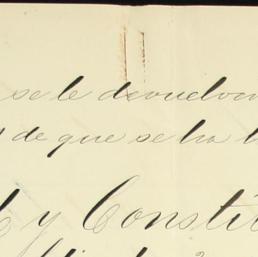 se le devuelvan
de que se ha
y Constit